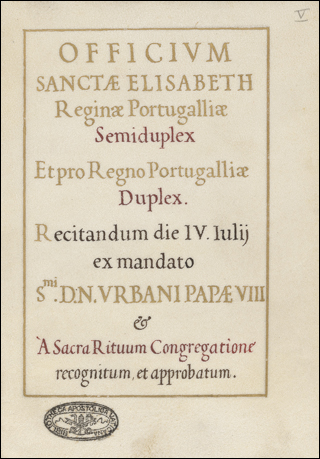 V
OFFICIVM
SANCTÆ ELISABETH
Reginæ Portugalliæ
Semiduplex
Et pro Regno Portugalliæ
Duplex.
Recitandum die IV. Iulij
ex mandato
Smi. D.N. VRBANI PAPÆ VIII
&
A Sacra Rituum Congregatione
recognitum, et approbatum.